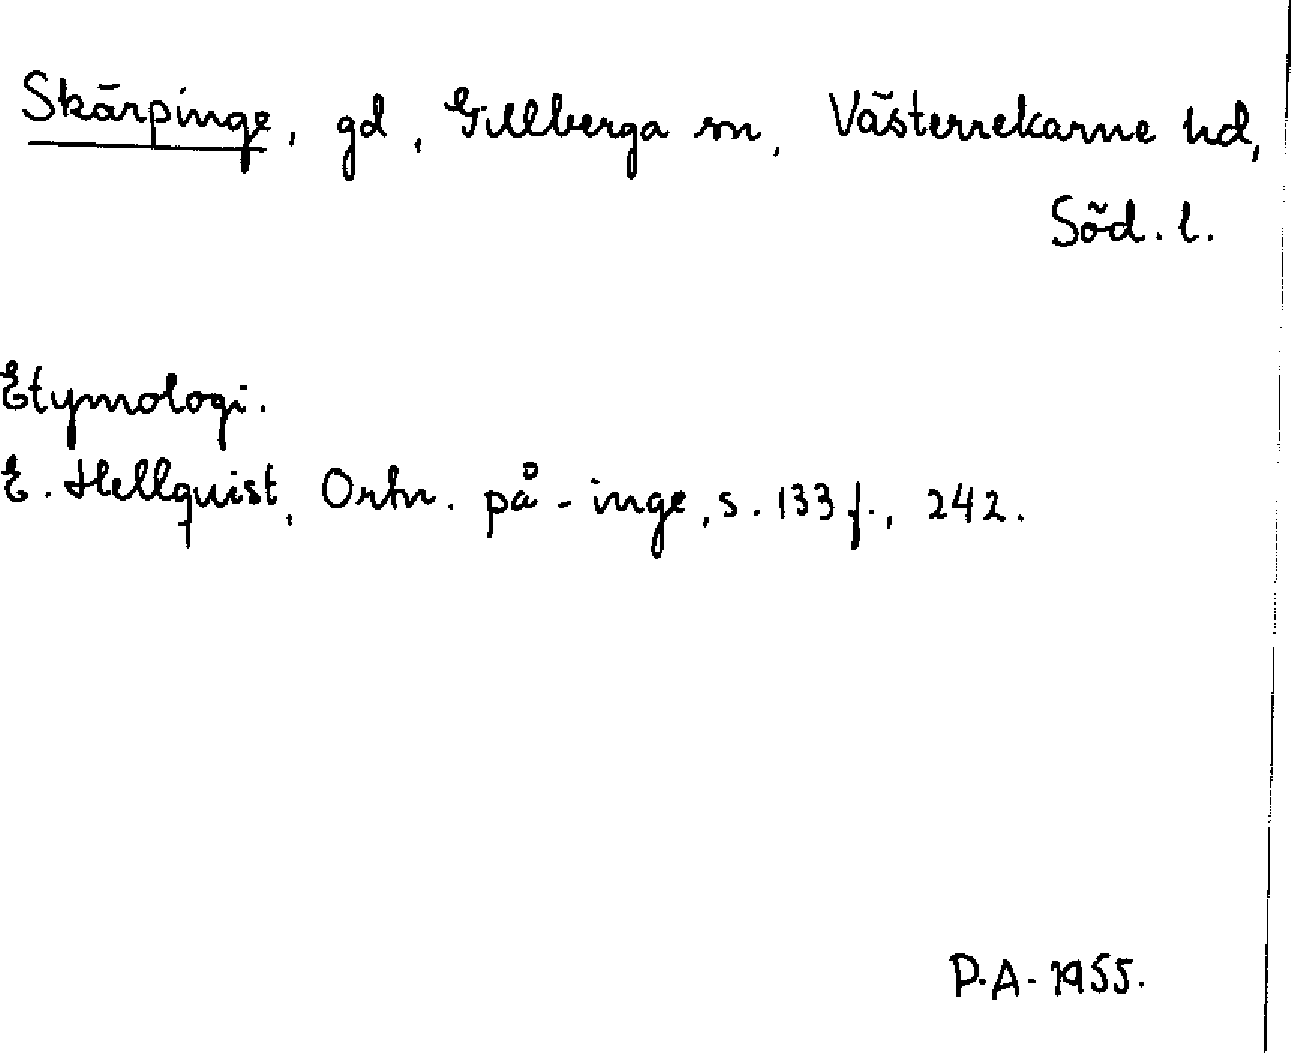 Skärpinge, gd, Gillberga sn, Västerrekarne hd,
Söd. l.
Etymologi.
E. Hellquist, Ortn. på -inge, s. 133 f., 242.
P.A. 1955.